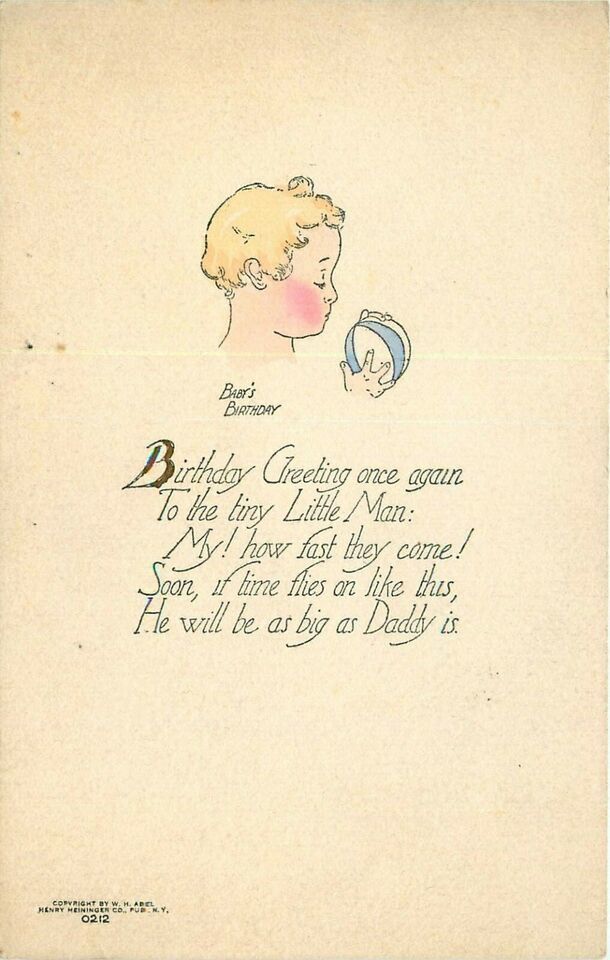 BABY'S
BIRTHDAY
Birthday Greeting once again
To the tiny Little Man:
My! how fast they come!
Soon, if time flies on like this,
He will be as big as Daddy is.
COPYRIGHT BY W. H. ABEL
HENRY HEININGER CO., PUB. N.Y.
0212